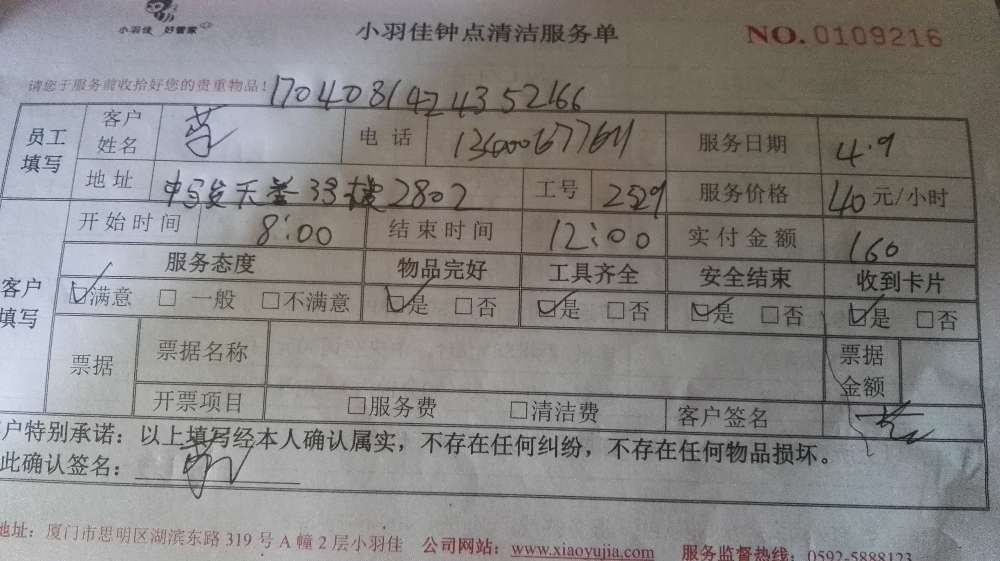 小羽佳 好管家
小羽佳钟点清洁服务单 NO.0109216
请您于服务前收拾好您的贵重物品！ 1704081424352166
员工填写 客户姓名 电话 服务日期 4.9
地址 2802 工号 2529 服务价格 40元/小时
客户填写 开始时间 8:00 结束时间 12:00 实付金额 160
服务态度 物品完好 工具齐全 安全结束 收到卡片
☑满意 □一般 □不满意 ☑是 □否 ☑是 □否 ☑是 □否 ☑是 □否
票据 票据名称 票据金额
开票项目 □服务费 □清洁费 客户签名
户特别承诺：以上填写经本人确认属实，不存在任何纠纷，不存在任何物品损坏。
此确认签名：
地址：厦门市思明区湖滨东路 319 号 A 幢 2 层小羽佳 公司网站：www.xiaoyujia.com 服务监督热线：0592-5888123